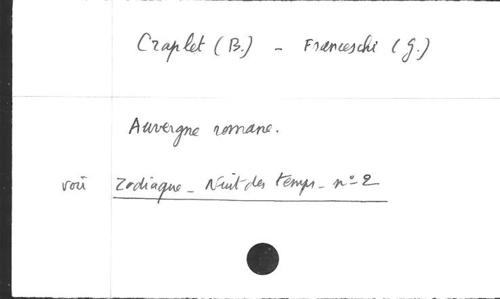 Craplet (B.) - Franceschi (G.)
Auvergne romane.
voir Zodiaque - Nuit des temps - n° 2